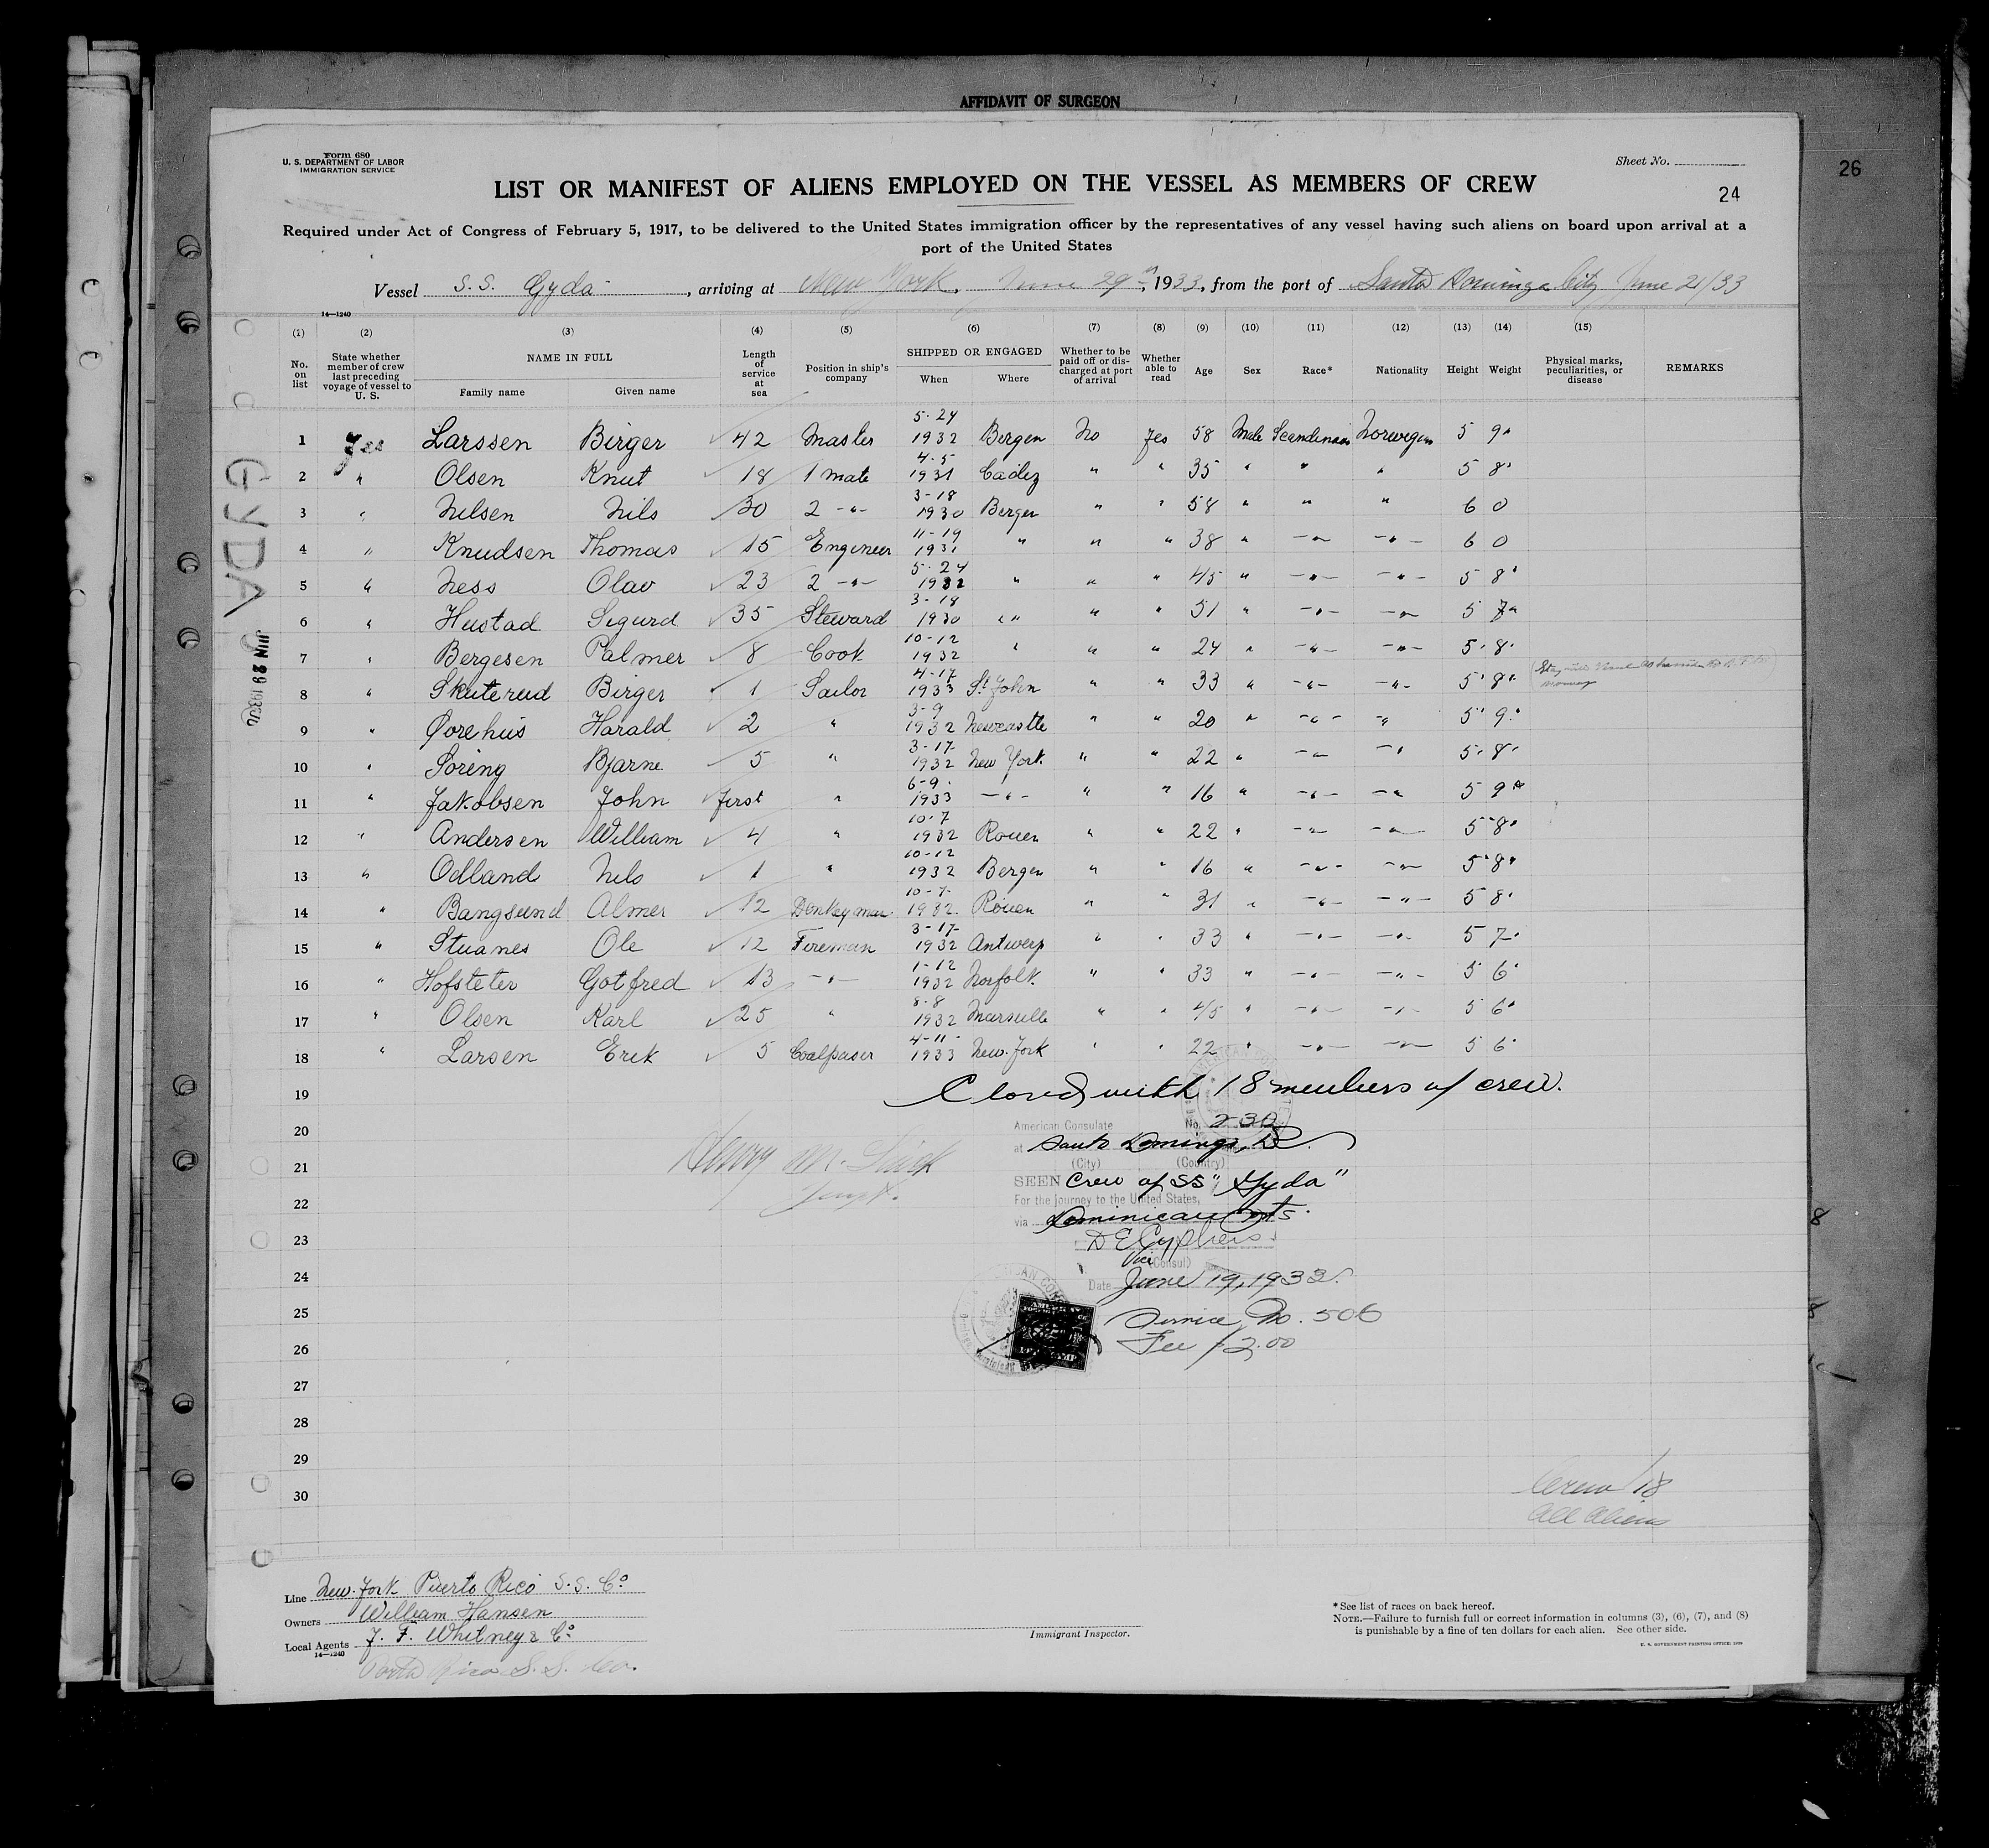 AFFIDAVIT OF SURGEON
26
Form 680
U. S. DEPARTMENT OF LABOR
IMMIGRATION SERVICE
Sheet No.
LIST OR MANIFEST OF ALIENS EMPLOYED ON THE VESSEL AS MEMBERS OF CREW
24
Required under Act of Congress of February 5, 1917, to be delivered to the United States immigration officer by the representatives of any vessel having such aliens on board upon arrival at a
port of the United States
Vessel S.S. Gyda, arriving at New York, June 29th, 1933, from the port of Santo Domingo City June 21/33
14—1240
(1) (2) (3) (4) (5) (6) (7) (8) (9) (10) (11) (12) (13) (14) (15)
No. on list State whether member of crew last preceding voyage of vessel to U. S. NAME IN FULL Family name Given name Length of service at sea Position in ship's company SHIPPED OR ENGAGED When Where Whether to be paid off or discharged at port of arrival Whether able to read Age Sex Race* Nationality Height Weight Physical marks, peculiarities, or disease REMARKS
1 Yes Larssen Birger 42 Master 5-24 1932 Bergen No Yes 58 Male Scandinav Norwegian 5 9"
2 " Olsen Knut 18 1 mate 4-5 1931 Cadiz " " 35 " " " 5 8"
3 " Nilsen Nils 30 2 -"- 3-18 1930 Bergen " " 58 " " " 6 0
4 " Knudsen Thomas 15 Engineer 11-19 1931 " " " 38 " -"- -"- 6 0
5 " Ness Olav 23 2 -"- 5-24 1932 " " " 45 " -"- -"- 5 8"
6 " Hustad Sigurd 35 Steward 3-18 1930 " " " 51 " -"- -"- 5 7"
7 " Bergesen Palmer 8 Cook 10-12 1932 " " " 24 " -"- -"- 5' 8"
8 " Skuterud Birger 1 Sailor 4-17 1933 St. John " " 33 " -"- -"- 5' 8"
9 " Øorehus Harald 2 " 3-9 1932 Newcastle " " 20 " -"- -"- 5' 9"
10 " Söreng Bjarne 5 " 3-17 1932 New York " " 22 " -"- -"- 5' 8"
11 " Jakobsen John first " 6-9 1933 -"- " " 16 " -"- -"- 5 9"
12 " Andersen William 4 " 10-7 1932 Rouen " " 22 " -"- -"- 5' 8"
13 " Odland Nils 1 " 10-12 1932 Bergen " " 16 " -"- -"- 5' 8"
14 " Bangsund Almer 12 Donkeyman 10-7 1932 Rouen " " 31 " -"- -"- 5 8"
15 " Stuanes Ole 12 Fireman 3-17 1932 Antwerp " " 33 " -"- -"- 5 7"
16 " Hofsteter Gotfred 13 -"- 1-12 1932 Norfolk " " 33 " -"- -"- 5 6"
17 " Olsen Karl 25 " 8-8 1932 Marseille " " 45 " -"- -"- 5 6"
18 " Larsen Erik 5 Coalpaser 4-11 1933 New-York " " 22 " -"- -"- 5 6"
GYDA
JUN 29 1933
19 Closed with 18 members of crew.
20 American Consulate No. 230
at Santo Domingo, DR
21 (City) (Country)
SEEN Crew of SS "Gyda"
22 For the journey to the United States,
via Dominican Pts.
23
Vice (Consul)
24 Date June 19, 1933.
25 Service No. 506
26 Fee $2.00
27
28
29
30
Crew 18
All Aliens
Line New-York Puerto Rico S.S. Co.
Owners William Hansen
Local Agents J. F. Whitney & Co.
14—1240
Porto Rico S.S. Co.
Immigrant Inspector.
*See list of races on back hereof.
NOTE.—Failure to furnish full or correct information in columns (3), (6), (7), and (8)
is punishable by a fine of ten dollars for each alien. See other side.